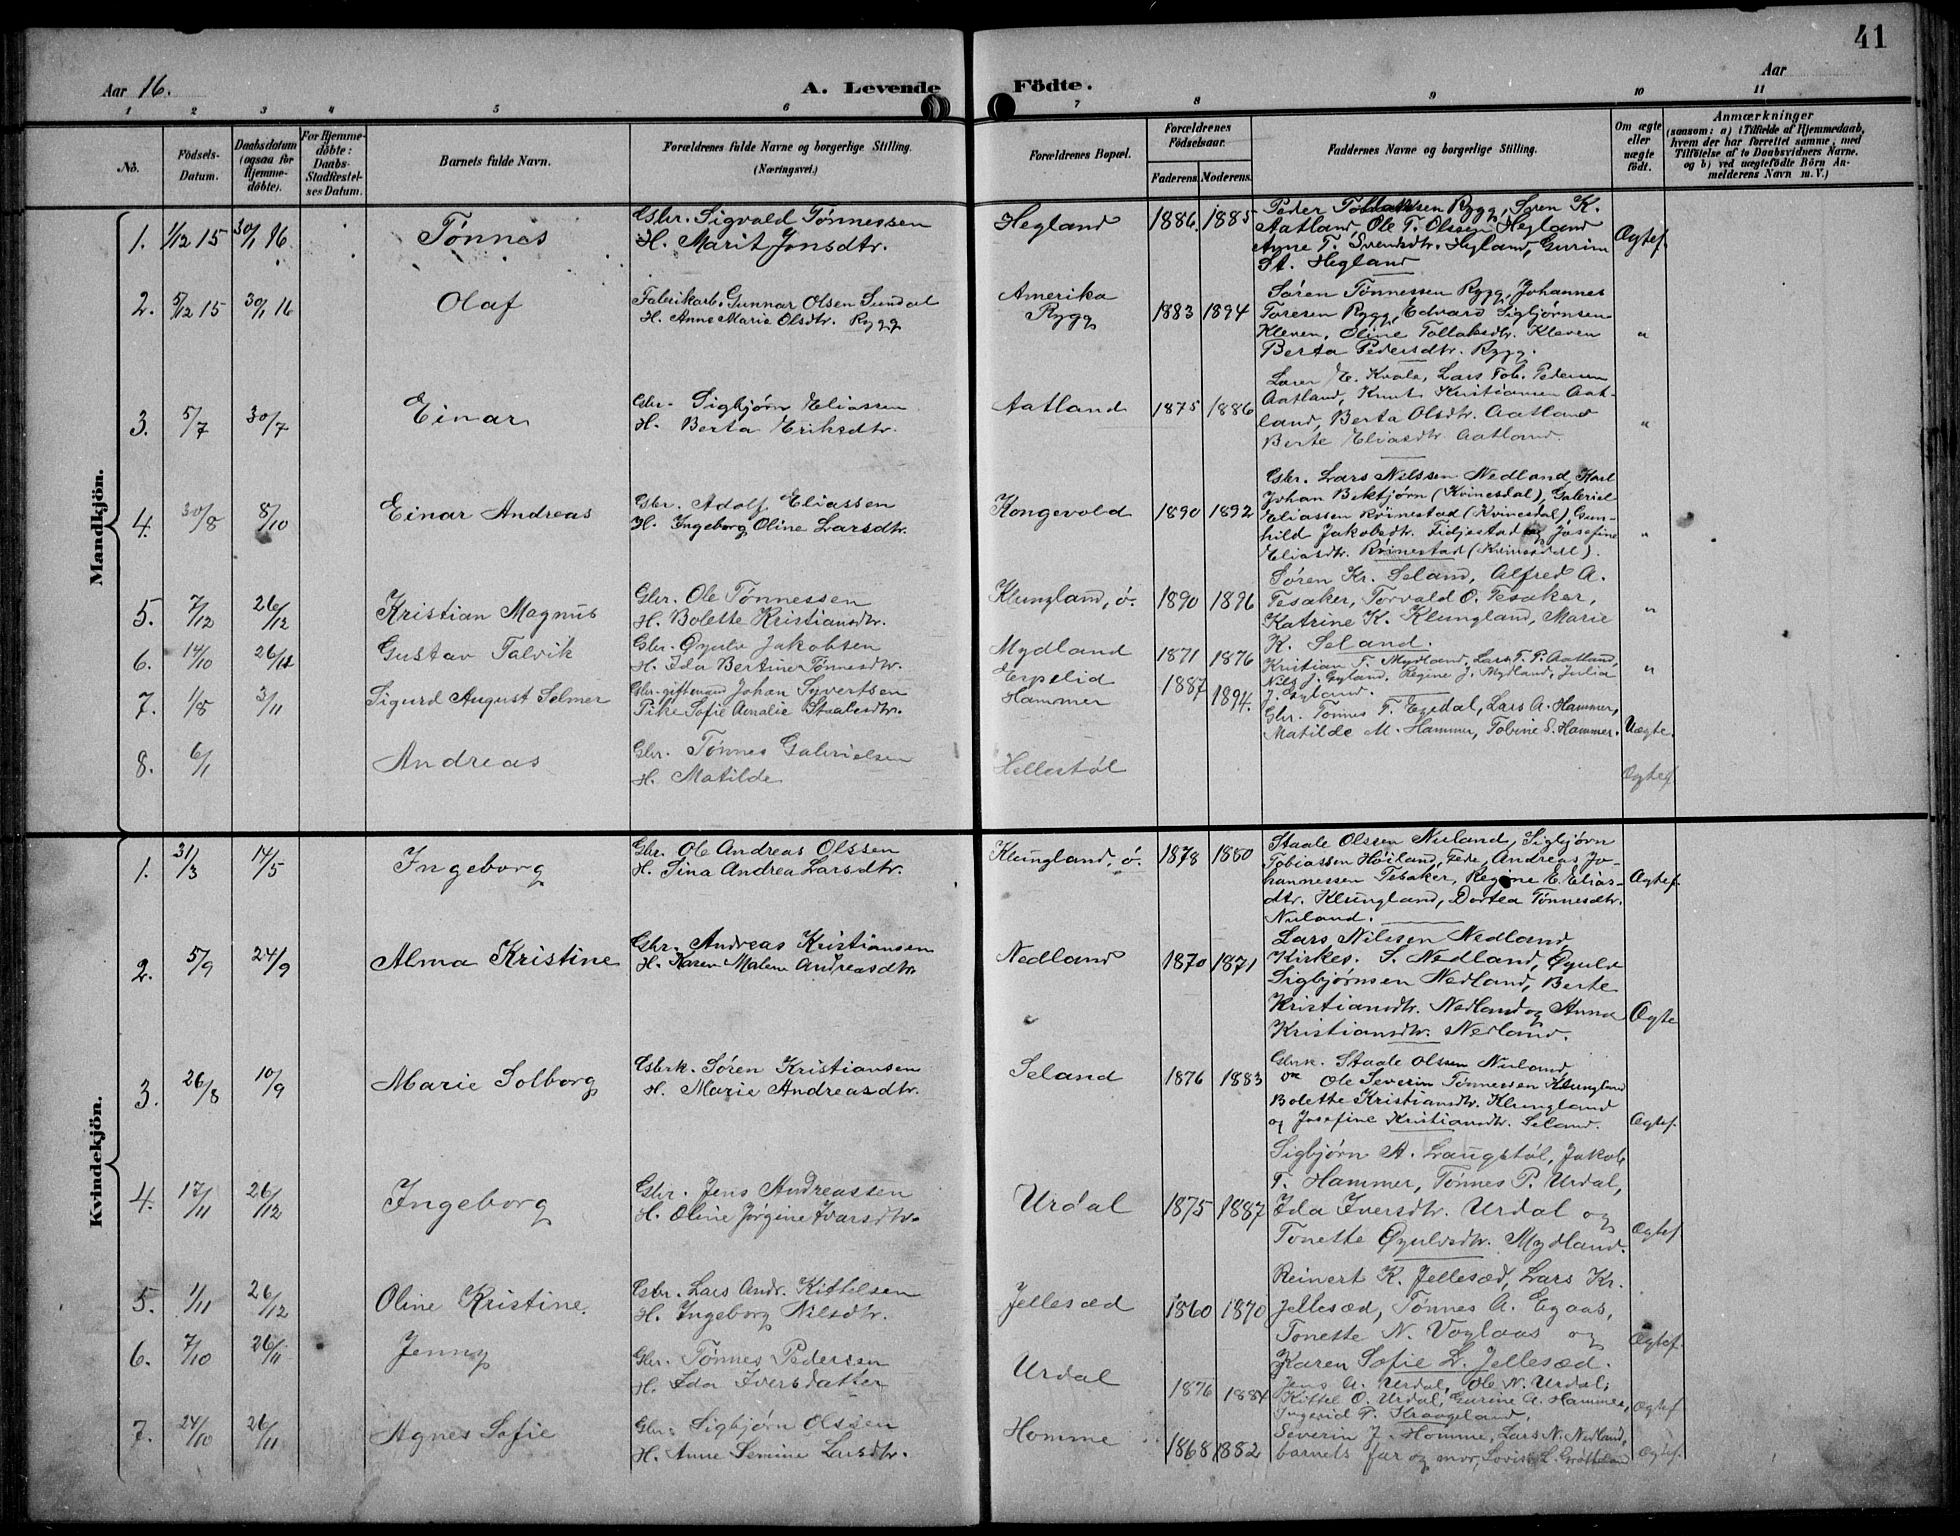 41
Aar 16.
A. Levende Födte.
Aar
1 2 3 4 5 6 7 8 9 10 11
No.
Födsels-Datum.
Daabsdatum (ogsaa for Hjemme-döbte).
For Hjemme-döbte: Daabs-Stadfæstel-ses Datum.
Barnets fulde Navn.
Forældrenes fulde Navne og borgerlige Stilling. (Næringsvei.)
Forældrenes Bopæl.
Forældrenes Födselsaar.
Faderens. Moderens.
Faddernes Navne og borgerlige Stilling.
Om ægte eller uægte födt.
Anmærkninger
(saasom: a) i Tilfælde af Hjemmedaab, hvem der har forrettet samme, med Tilföielse af to Daabsvidners Navne, og b) ved uægtefödte Börn An-melderens Navn m. V.)
Mandkjön.
1. 1/12 15 30/1 16 Tønnes
Gbr. Sigvald Tønnessen
H. Marit Jonsdtr.
Hegland 1886. 1885
Peder Tollaksen Rygg, Søren K.
Aatland, Ole T. Olssen Hegland
Anne T. Svendsdtr. Hegland, Gurine
St. Hegland
Ægtef.
2. 5/12 15 30/1 16 Olaf
Fabrikarb. Gunnar Olsen Sundal
H. Anne Marie Olsdtr. Rygg
Amerika
Rygg 1883 1894
Søren Tønnessen Rygg, Johannes
Toresen Rygg, Edvard Sigbjørnsen
Kleven, Oline Tollaksdtr. Kleven
Berta Pedersdtr. Rygg.
"
3. 5/7 30/7 Einar
Gbr. Sigbjørn Eliassen
H. Berta Eriksdtr.
Aatland 1875 1886
E. Kvale, Lars Tob. Pedersen
Aatland, Knut Kristiansen Aat-
land, Berta Olsdtr. Aatland
Berte Eliasdtr. Aatland.
"
4. 30/8 8/10 Einar Andreas
Gbr. Adolf Eliassen
H. Ingeborg Oline Larsdtr.
Kongevold 1890 1892
Gbr. Lars Nilssen Nedland, Karl
Johan Bektjørn (Kvinesdal), Gabriel
Eliassen Røinestad (Kvinesdal), Gun-
hild Jakobsdtr. Tidjestad og Josefine
Eliasdtr. Røinestad (Kvinesdal).
"
5. 7/12 26/12 Kristian Magnus
Gbr. Ole Tønnessen
H. Bolette Kristiansdtr.
Klungland, ø. 1890 1896
Søren Kr. Seland, Alfred A.
Tesaker, Torvald O. Tesaker,
Katrine K. Klungland, Marie
K. Seland.
"
6. 14/10 26/12 Gustav Talvik
Gbr. Øyulv Jakobsen
H. Ida Bertine Tønnesdtr.
Mydland 1871 1876
Kristian T. Mydland, Lars T. P. Aatland,
Nils J. Gyland, Regine J. Mydland, Julia
J. Gyland.
"
7. 1/8 3/11 Sigurd August Selmer
Gbr. giftemand Johan Syvertsen
Pike Sofie Amalie Staalesdtr.
Erpelid
Hammer 1887 1894.
Gbr. Tønnes T. Egedal, Lars A. Hammer,
Matilde M. Hammer, Tobine S. Hammer.
Uægte.
8. 6/1 Andreas
Gbr. Tønnes Gabrielsen
H. Matilde
Hellestøl
Ægtef
Kvindekjön.
1. 31/3 14/5 Ingeborg
Gbr. Ole Andreas Olssen
H. Sina Andrea Larsdtr.
Klungland, ø. 1878 1880
Staale Olssen Nuland, Sigbjørn
Tobiassen Høiland, Fede, Andreas Jo-
hannessen Tesaker, Regine E. Elias-
dtr. Klungland, Dortea Tønnesdtr.
Nuland.
Ægtef.
2. 5/9 24/9 Alma Kristine
Gbr. Andreas Kristiansen
H. Karen Malene Andreasdtr
Nedland 1870 1871
Lars Nilssen Nedland,
Kirkes. S. Nedland, Øyulv
Sigbjørnsen Nedland, Berte
Kristiansdtr. Nedland og Anna
Kristiansdtr. Nedland.
Ægte
3. 26/8 10/9 Marie Solborg
Gbrk. Søren Kristiansen
H. Marie Andreasdtr.
Seland 1876 1883
Gbrk. Staale Olssen Nuland,
Ole Severin Tønnessen Klungland
Bolette Kristiansdtr. Klungland
og Josefine Kristiansdtr. Seland.
Ægtef.
4. 17/11 26/12 Ingeborg
Gbr. Jens Andreassen
H. Oline Jørgine Ivarsdtr.
Urdal 1875 1887
Sigbjørn A. Laugstøl, Jakob
T. Hammer, Tønnes P. Urdal,
Ida Iversdtr. Urdal og
Tonette Øyulvsdtr. Mydland.
Ægtef
5. 1/11 26/12 Oline Kristine.
Gbr. Lars Andr. Kittelsen
H. Ingeborg Nilsdtr.
Jellesæd 1860 1870
Reinert K. Jellesæd, Lars Kr.
Jellesæd, Tønnes A. Egaas,
Tonette N. Voglaas og
Karen Sofie L. Jellesæd.
Ægtef.
6. 7/10 26/11 Jenny
Gbr. Tønnes Pedersen
H. Ida Iversdatter
Urdal 1876 1884
Jens A. Urdal, Ole N. Urdal,
Kittel O. Urdal, Gurine A. Hammer,
Ingerid P. Kraageland.
Ægtef
7. 24/10 26/11 Agnes Sofie
Gbr. Sigbjørn Olssen
H. Anne Semine Larsdtr.
Homme 1868 1882
Severin J. Homme, Lars N. Nedland,
barnets far og mor, Lovise L. Grøtteland
Ægtef.